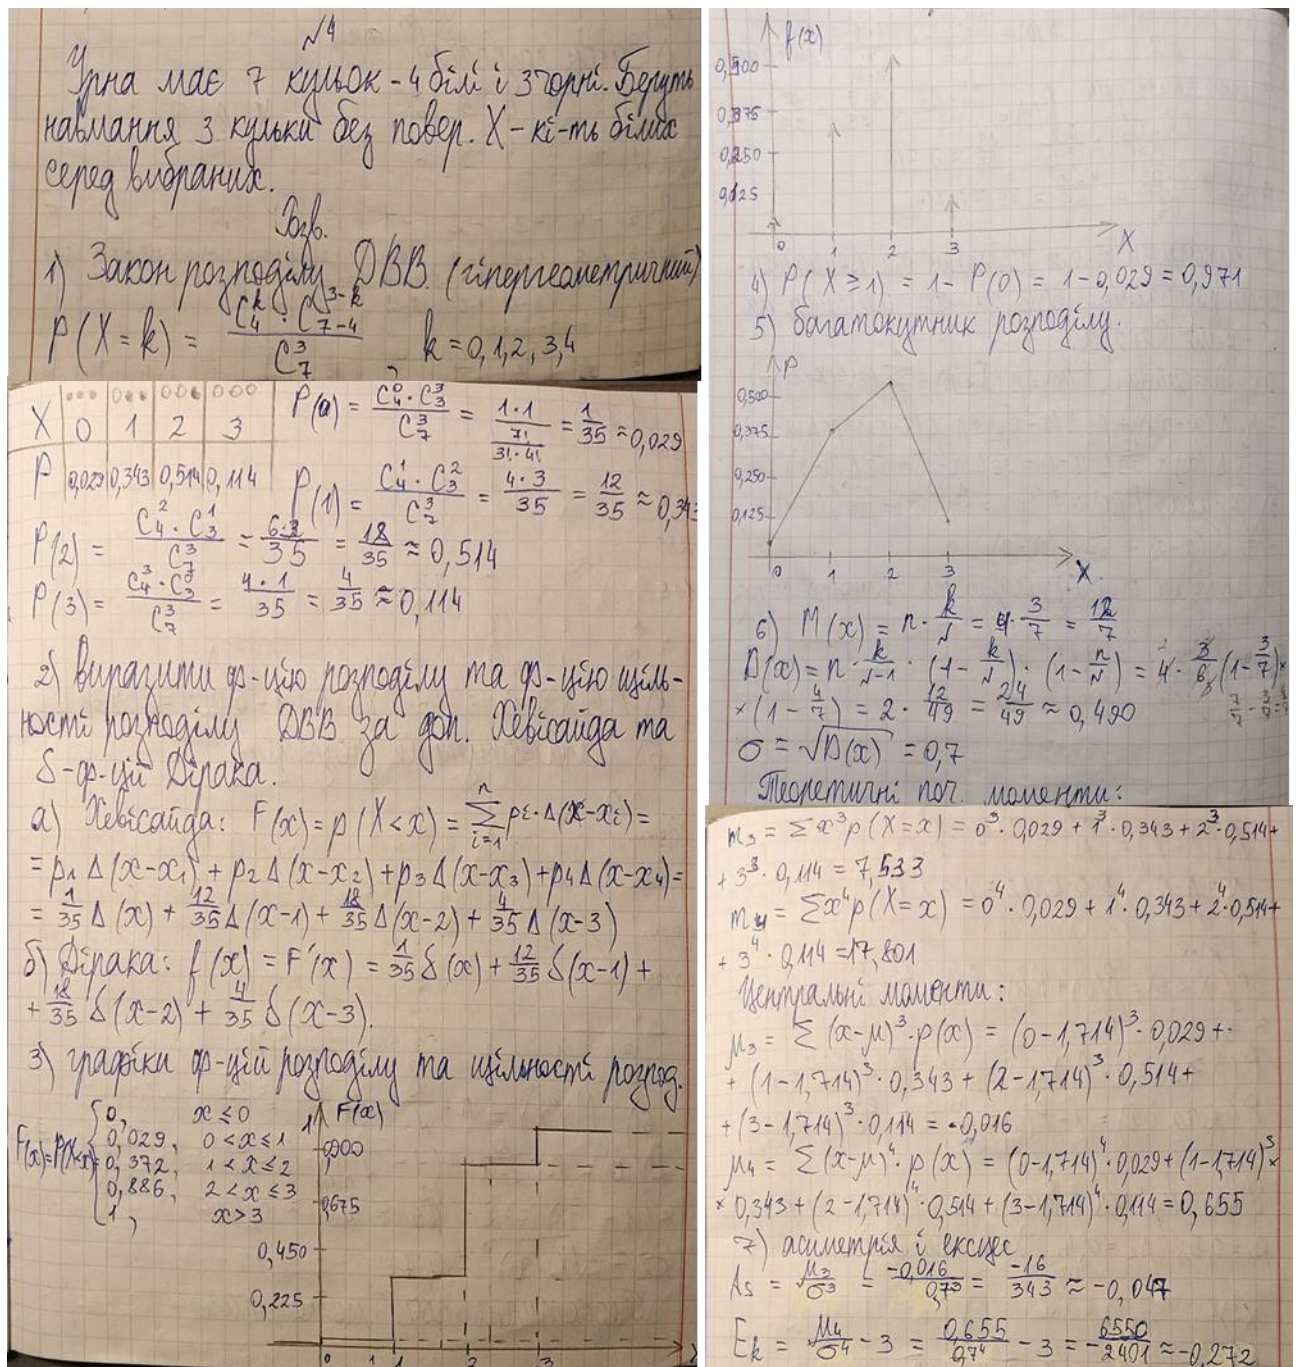 №4
Урна має 7 кульок - 4 білі і 3 чорні. Беруть
навмання 3 кульки без повер. X - кі-ть білих
серед вибраних.
Розв.
1) Закон розподілу ДВВ. (гіпергеометричний)
P(X=k) = (C_4^k · C_{7-4}^{3-k}) / C_7^3, k = 0,1,2,3,4
X | 0 | 1 | 2 | 3
P | 0,029 | 0,343 | 0,514 | 0,114
P(0) = (C_4^0 · C_3^3) / C_7^3 = (1·1) / (7! / (3!·4!)) = 1/35 ≈ 0,029
P(1) = (C_4^1 · C_3^2) / C_7^3 = (4·3)/35 = 12/35 ≈ 0,343
P(2) = (C_4^2 · C_3^1) / C_7^3 = (6·3)/35 = 18/35 ≈ 0,514
P(3) = (C_4^3 · C_3^0) / C_7^3 = (4·1)/35 = 4/35 ≈ 0,114
2) виразити ф-цію розподілу та ф-цію щіль-
ності розподілу ДВВ за доп. Хевісайда та
δ-ф-цій Дірака.
а) Хевісайда: F(x) = p(X<x) = Σ_{i=1}^n pi·Δ(x-xi) =
= p1 Δ(x-x1) + p2 Δ(x-x2) + p3 Δ(x-x3) + p4 Δ(x-x4) =
= 1/35 Δ(x) + 12/35 Δ(x-1) + 18/35 Δ(x-2) + 4/35 Δ(x-3)
б) Дірака: f(x) = F'(x) = 1/35 δ(x) + 12/35 δ(x-1) +
+ 18/35 δ(x-2) + 4/35 δ(x-3).
3) графіки ф-цій розподілу та щільності розпод.
F(x)=P(X<x)=
0, x ≤ 0
0,029, 0 < x ≤ 1
0,372, 1 < x ≤ 2
0,886, 2 < x ≤ 3
1, x > 3
1 F(x)
0,900
0,675
0,450
0,225
0 1 2 3
f(x)
0,500
0,375
0,250
0,125
0 1 2 3 X
4) P(X ≥ 1) = 1 - P(0) = 1 - 0,029 = 0,971
5) багатокутник розподілу.
P
0,500
0,375
0,250
0,125
0 1 2 3 X
6) M(x) = n · k/N = 4 · 3/7 = 12/7
D(x) = n · k/(N-1) · (1 - k/N) · (1 - n/N) = 4 · 3/6 (1 - 3/7) ×
× (1 - 4/7) = 2 · 12/49 = 24/49 ≈ 0,490
σ = √D(x) = 0,7
Теоретичні поч. моменти:
m3 = Σx³p(X=x) = 0³·0,029 + 1³·0,343 + 2³·0,514 +
+ 3³·0,114 = 7,533
m4 = Σx⁴p(X=x) = 0⁴·0,029 + 1⁴·0,343 + 2⁴·0,514 +
+ 3⁴·0,114 = 17,801
Центральні моменти:
μ3 = Σ(x-μ)³·p(x) = (0-1,714)³·0,029 +
+ (1-1,714)³·0,343 + (2-1,714)³·0,514 +
+ (3-1,714)³·0,114 = -0,016
μ4 = Σ(x-μ)⁴·p(x) = (0-1,714)⁴·0,029 + (1-1,714)³ ×
× 0,343 + (2-1,714)⁴·0,514 + (3-1,714)⁴·0,114 = 0,655
7) асиметрія і ексцес
As = μ3/σ³ = -0,016/0,7³ = -16/343 ≈ -0,047
Ek = μ4/σ⁴ - 3 = 0,655/0,7⁴ - 3 = -6550/2401 ≈ -0,272